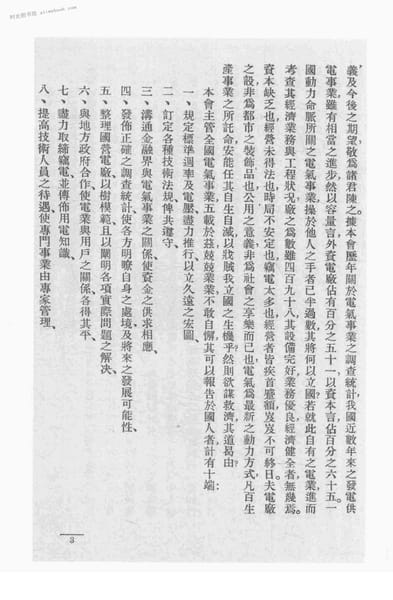 義及今後之期望敬爲諸君陳之據本會歷年關於電氣事業之調查統計我國近數年來之發電供
電事業雖有相當之進步然以容量言外資電廠佔有百分之五十一以資本言佔百分之六十五一
國動力命脈所關之電氣事業操於他人之手者已半過數其將何以立國若就此自有之電業進而
考查其經濟業務與工程狀況廠之爲數雖四百九十八其設備完好業務優良經濟健全者無幾焉
資本缺乏也經營未得法也時局不安定也竊電太多也經營者皆疾首蹙額岌岌不可終日夫電廠
之設非爲都市之裝飾品也公用之意義非爲社會之享樂而已也電氣爲最新之動力方式凡百生
產事業之所託命安能任其自生自滅以戕賊我立國之生機乎然則欲謀救濟其道曷由
本會主管全國電氣事業五載於茲兢兢業業不敢自懈其可以報告於國人者計有十端：
一、規定標準週率及電壓盡力推行以立久遠之宏圖、
二、訂定各種技術法規俾共遵守、
三、溝通金融界與電氣事業之關係使資金之供求相應、
四、發佈正確之調查統計使各方明嘹自身之處境及將來之發展可能性、
五、整理國營電廠以樹模範且以闡明各項實際問題之解決、
六、與地方政府合作使電業與用戶之關係各得其平、
七、盡力取締竊電並傳佈用電知識、
八、提高技術人員之待遇使專門事業由專家管理、
3